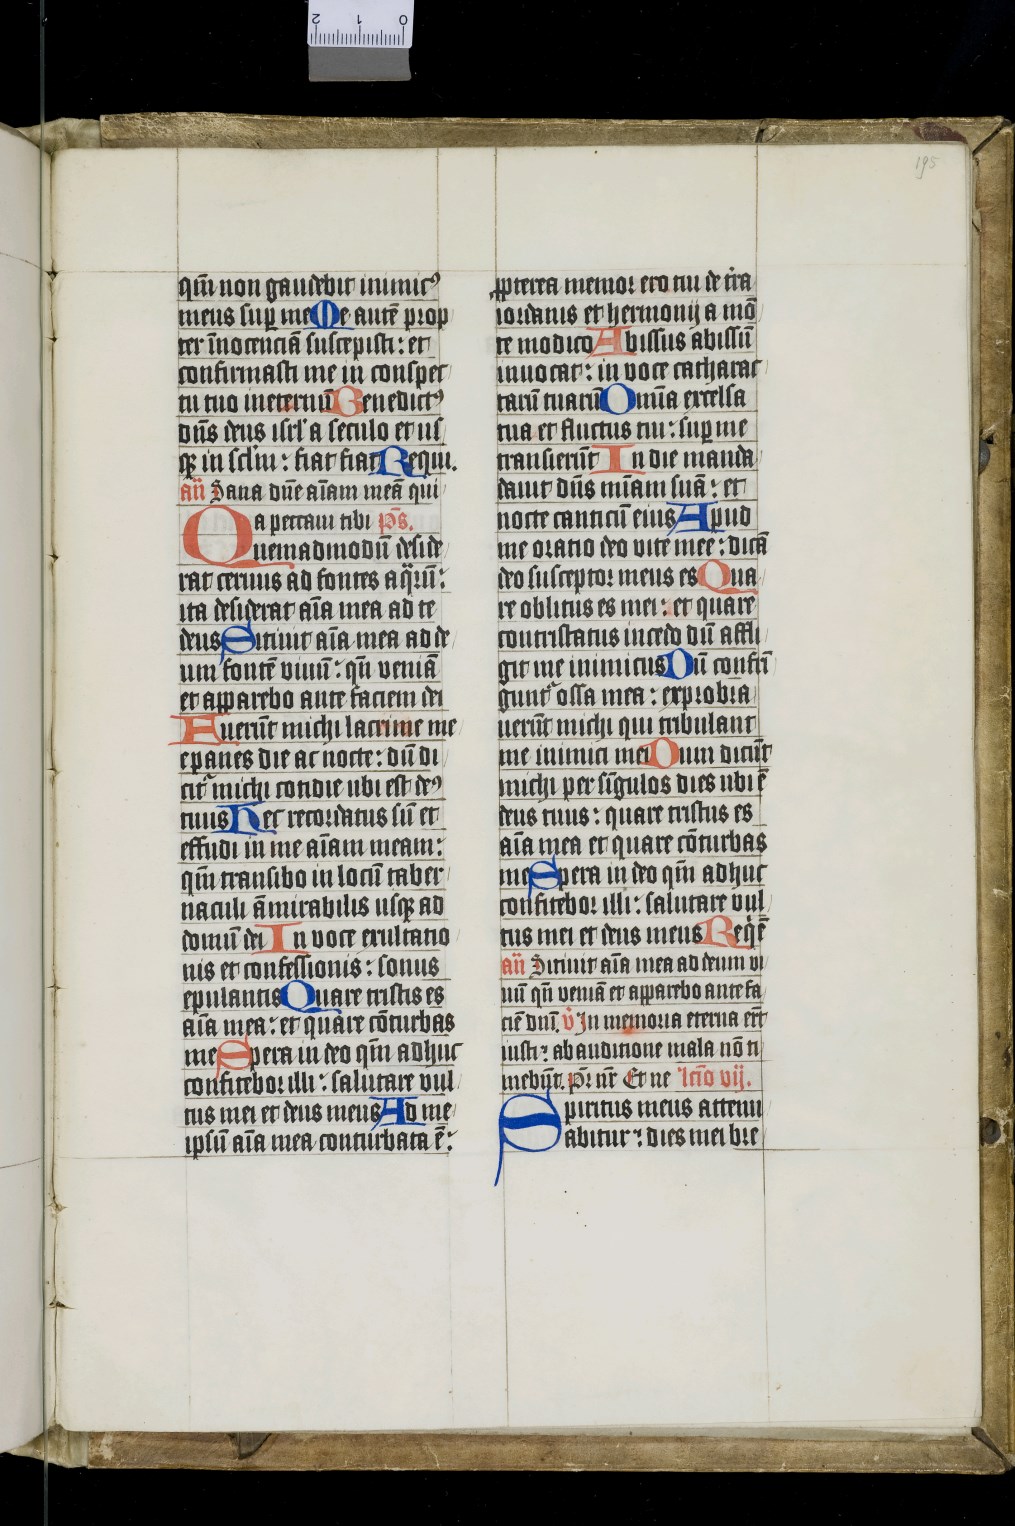 195
qm̄ non gaudebit inimicꝰ
meus suꝑ me Me autē prop
ter īnocenciā suscepisti: et
confirmasti me in conspec
tu tuo ineternū Benedictꝰ
dn̄s deus isrl' a seculo et us
qꝫ in scl'm: fiat fiat Requi.
an̄ Sana dn̄e aīam meā qui
a peccaui tibi ps̄.
Quemadmodū deside
rat ceruus ad fontes aq̈rū:
ita desiderat aīa mea ad te
deus Sitiuit aīa mea ad de
um fontē viuū: qn̄ veniā
et apparebo ante faciem dei
Fuerūt michi lacrime me
e panes die ac nocte: dū di
cit᷑ michi cotidie ubi est deꝰ
tuus Hec recordatus sū et
effudi in me aīam meam:
qm̄ transibo in locū taber
naculi āmirabilis usqꝫ ad
domū dei In voce exultatio
nis et confessionis: sonus
epulantis Quare tristis es
aīa mea: et quare cōturbas
me Spera in deo qm̄ adhuc
confitebor illi: salutare vul
tus mei et deus meus Ad me
ipsū aīa mea conturbata ē:
ꝓpterea memor ero tui de tr̄a
iordanis et hermonij a mō
te modico Abissus abissū
inuocat: in voce catharac
tarū tuarū Omīa excelsa
tua et fluctus tui: suꝑ me
transierūt In die manda
dauit dn̄s mīam suā: et
nocte canticū eius Apud
me oratio deo vite mee: dicā
deo susceptor meus es Qua
re oblitus es mei: et quare
contristatus incedo dū affli
git me inimicus Dū confrī
gunt᷑ ossa mea: exprobra
uerūt michi qui tribulant
me inimici mei Dum dicūt
michi per sīgulos dies ubi ē
deus tuus: quare tristus es
aīa mea et quare cōturbas
me Spera in deo qm̄ adhuc
confitebor illi: salutare vul
tus mei et deus meus Reqē
an̄ Sitiuit aīa mea ad deum vi
uū qn̄ veniā et apparebo ante fa
ciē dn̄i. v̄ In memoria eterna er̄t
iusti: ab auditione mala nō ti
mebūt. Pr̄ nr̄ Et ne lc̄io vij.
Spiritus meus attenu
abitur: dies mei bre
0 1 2